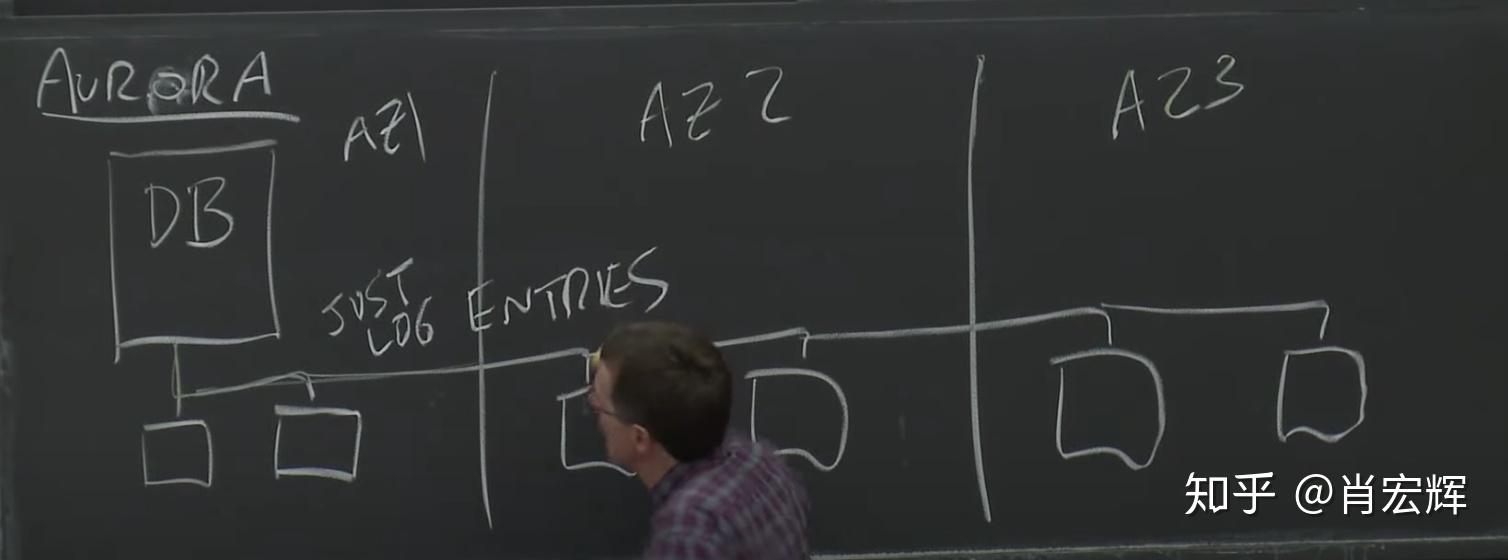 AURORA
AZ1
AZ2
AZ3
DB
JUST
LOG ENTRIES
知乎 @肖宏辉